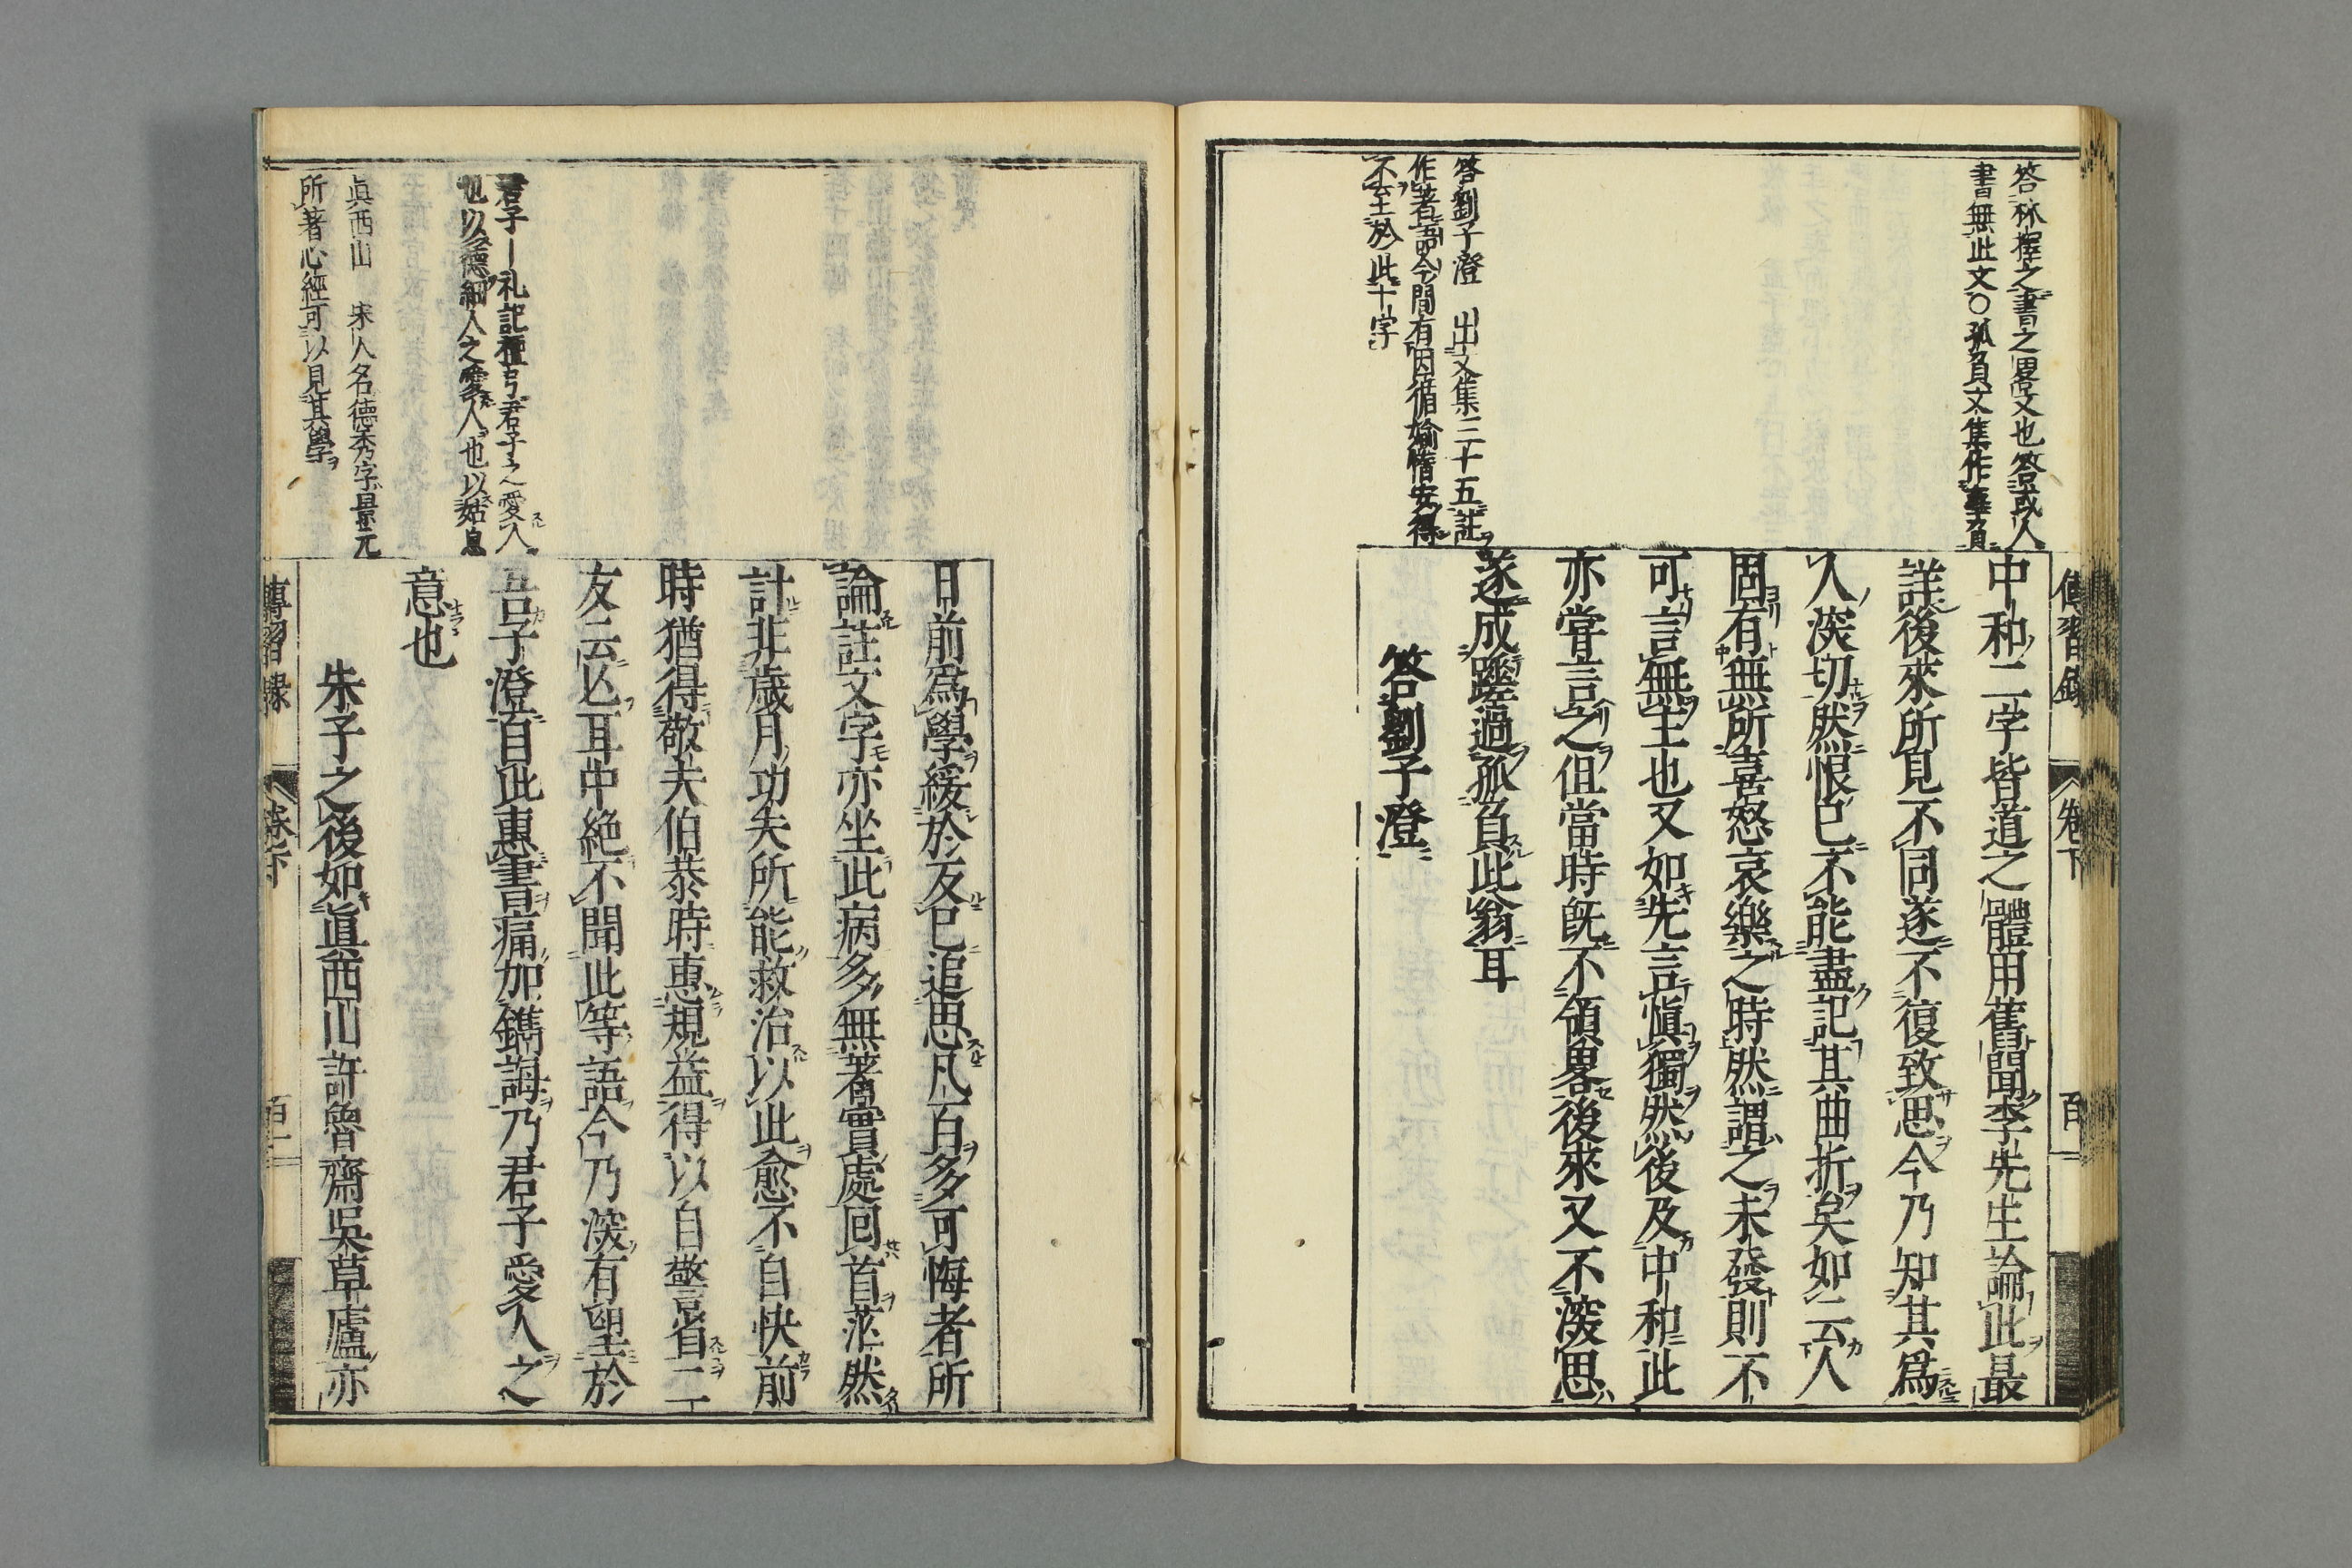 答林擇之書之畧文也答或人
書無此文〇孤負文集作辜負
中和二字皆道之體用舊聞李先生論此最
詳後來所見不同遂不復致思今乃知其爲
人深切然恨已不能盡記其曲折矣如云人
固有無所喜怒哀樂之時然謂之未發則不
可言無主也又如先言愼獨然後及中和此
亦嘗言之但當時既不領畧後來又不深思
遂成蹉過孤負此翁耳
答劉子澄 出文集三十五註
作著語今間有因循媮惰安得
不至於此十字
答劉子澄
傳習錄
卷下
百一
日前爲學緩於反已追思凡百多可悔者所
論註文字亦坐此病多無著實處回首茫然
計非歲月功夫所能救治以此愈不自快前
時猶得敬夫伯恭時惠規益得以自警省二
友云亡耳中絶不聞此等語今乃深有望於
君子―礼記檀弓君子之愛人
也以德細人之愛人也以姑息
吾子澄自此惠書痛加鐫誨乃君子愛人之
意也
眞西山 宋人名德秀字景元
所著心經可以見其學
朱子之後如眞西山許魯齋吳草廬亦
傳習錄
卷下
百二